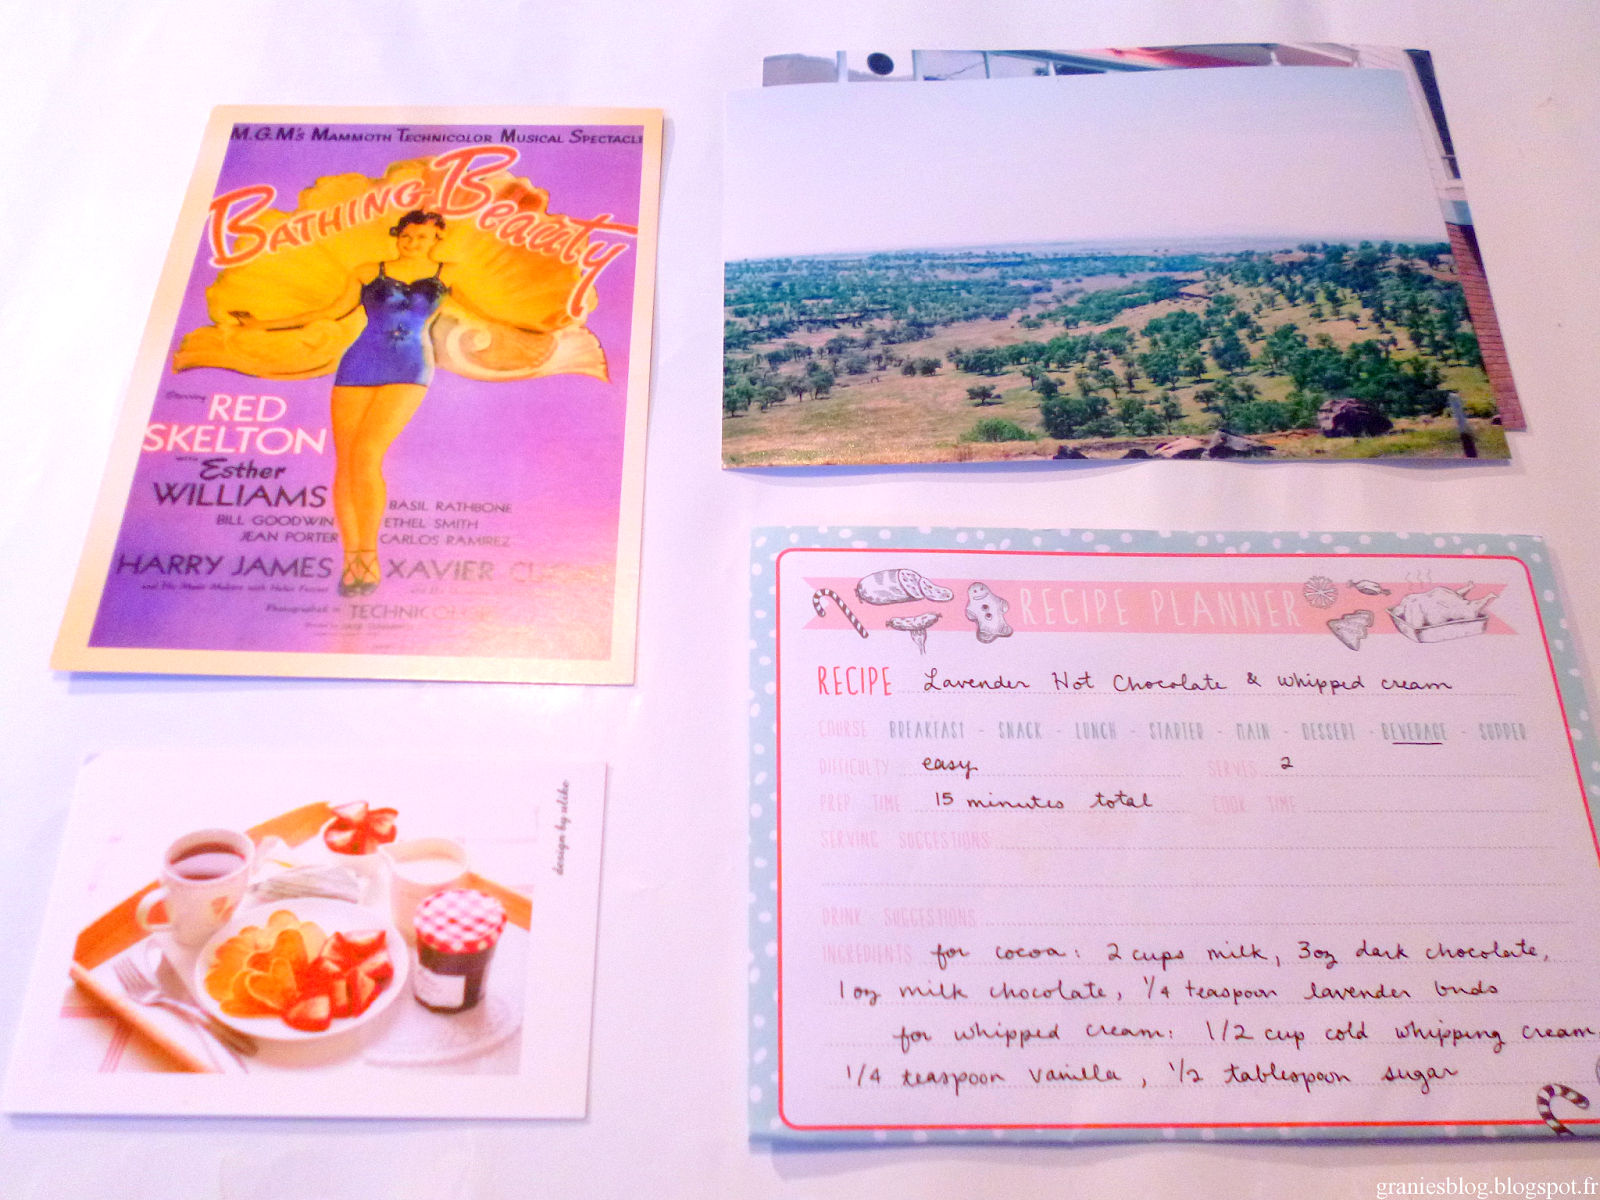 M.G.M's MAMMOTH TECHNICOLOR MUSICAL SPECTACLE
BATHING BEAUTY
Starring
RED
SKELTON
with
Esther
WILLIAMS
BASIL RATHBONE
BILL GOODWIN ETHEL SMITH
JEAN PORTER CARLOS RAMIREZ
HARRY JAMES XAVIER
and His Music Makers with Helen Forrest
Photographed in TECHNICOLOR
design by ulike
RECIPE PLANNER
RECIPE Lavender Hot Chocolate & whipped cream
COURSE BREAKFAST - SNACK - LUNCH - STARTER - MAIN - DESSERT - BEVERAGE - SUPPER
DIFFICULTY easy SERVES 2
PREP TIME 15 minutes total COOK TIME
SERVING SUGGESTIONS
DRINK SUGGESTIONS
INGREDIENTS for cocoa: 2 cups milk, 3oz dark chocolate,
1 oz milk chocolate, 1/4 teaspoon lavender buds
for whipped cream: 1/2 cup cold whipping cream,
1/4 teaspoon vanilla, 1/2 tablespoon sugar
graniesblog.blogspot.fr